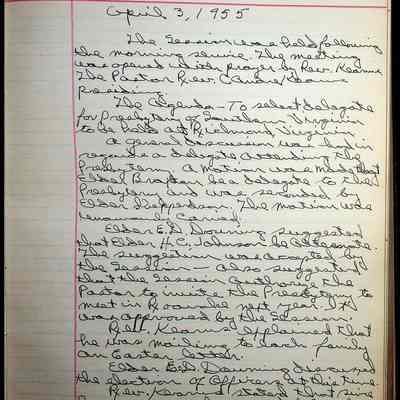 April 3, 1955
The Session was held following
the morning service. The meeting
was opened with prayer by Rev. Kearns.
The Pastor Rev. C. Kearns
presiding.
The Agenda - To select delegate
for Presbytery of Southern Virginia
to be held at Richmond Virginia.
A general discussion was had in
regards a delegate attending the
Presbytery. A motion was made that
Elder Braxton be a delegate to the
Presbytery and was seconded by
Elder The motion was
unanimously Carried.
Elder E.D. Downing suggested
that Elder H.C. Johnson be alternate.
The suggestion was accepted by
the Session - also suggested
that the Session authorize the
Pastor to invite the Presbytery to
meet in Roanoke next year. It
was approved by the Session.
Rev. Kearns explained that
he was mailing to each family
an Easter letter.
Elder E.D. Downing discussed
the election of Officers at this time.
Rev. Kearns stated that since